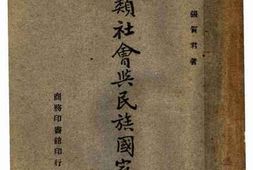 張賀君著
類社會與民族國家
商務印書館印行